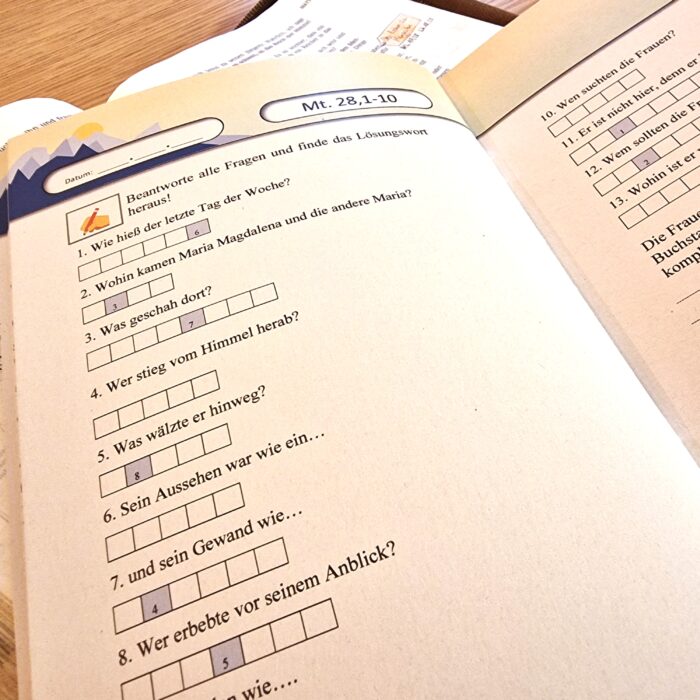 Mt. 28,1-10
Datum:
Beantworte alle Fragen und finde das Lösungswort
heraus!
1. Wie hieß der letzte Tag der Woche?
6
2. Wohin kamen Maria Magdalena und die andere Maria?
3
3. Was geschah dort?
7
4. Wer stieg vom Himmel herab?
5. Was wälzte er hinweg?
8
6. Sein Aussehen war wie ein…
7. und sein Gewand wie…
4
8. Wer erbebte vor seinem Anblick?
5
wie….
10. Wen suchten die Frauen?
11. Er ist nicht hier, denn er
1
12. Wem sollten die
2
13. Wohin ist er
Die